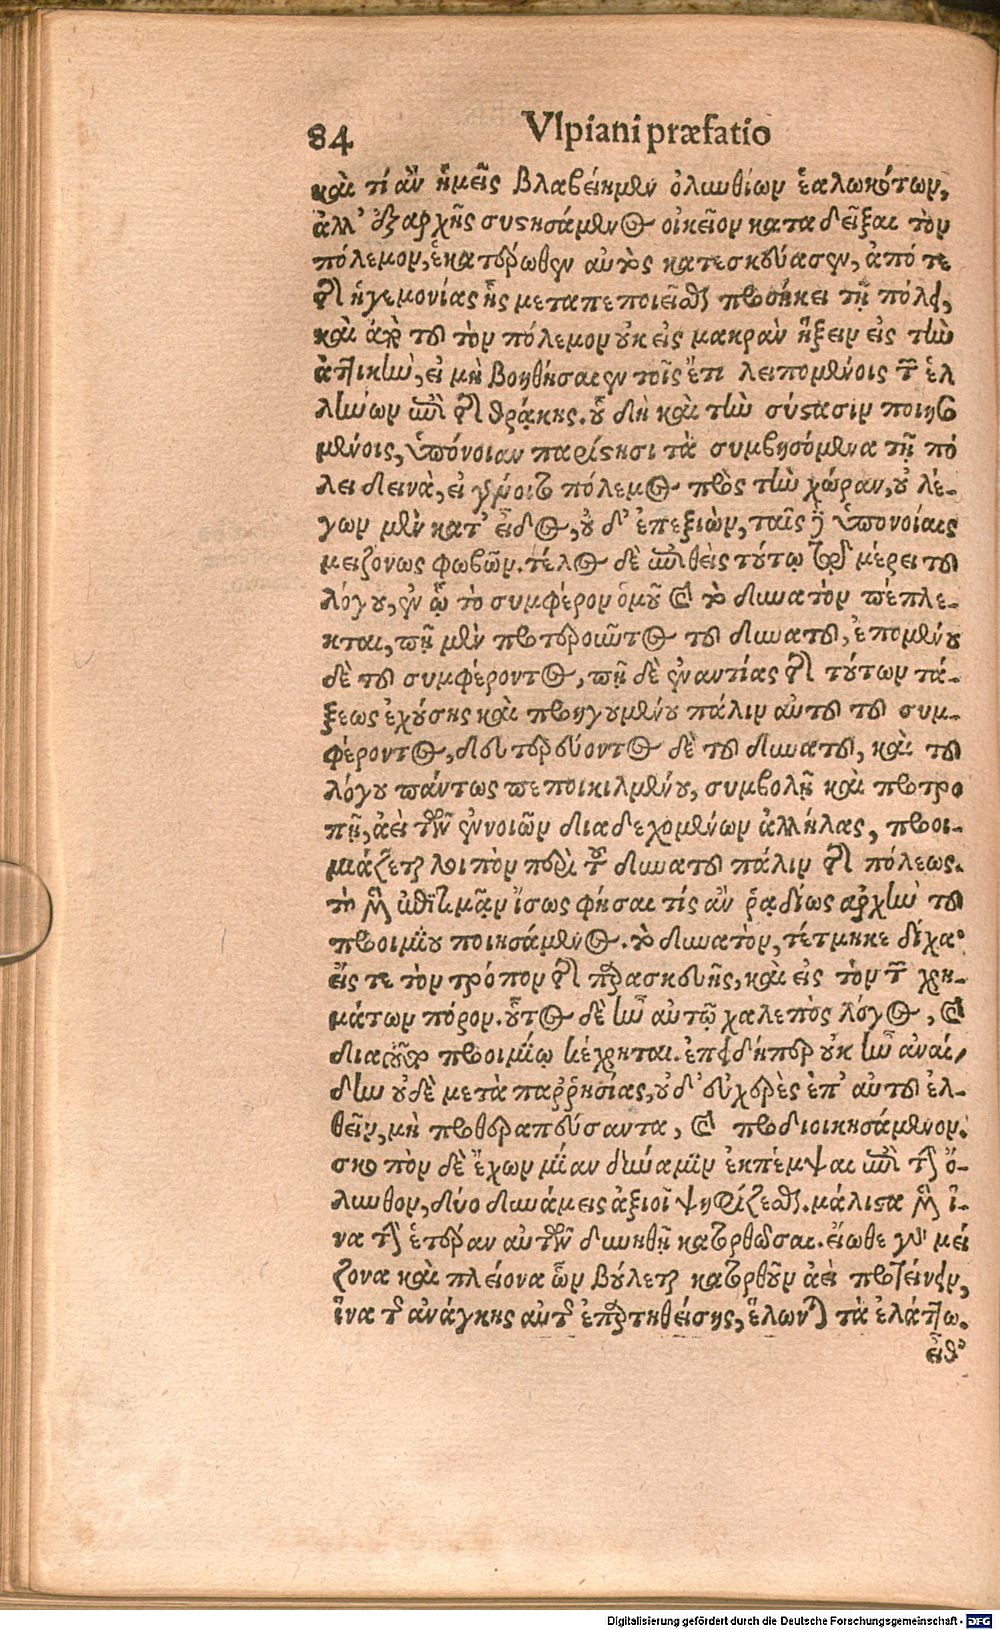 84 Vlpiani præfatio
καὶ τί ἂν ἡμεῖς βλαβείημεν ὀλυνθίων ἑαλωκότων,
ἀλλ' ἐξ αρχῆς συστησάμενος οἰκεῖον καταδεῖξαι τὸν
πόλεμον, ἑκατέρωθεν αὐτὸς κατεσκεύασεν, ἀπό τε
τῆς ἡγεμονίας ἧς μεταπεποιεῖσθαι προσήκει τῇ πόλει,
καὶ ἀπὸ τοῦ τὸν πόλεμον οὐκ εἰς μακρὰν ἥξειν εἰς τὴν
ἀττικὴν, εἰ μὴ βοηθήσαιεν τοῖς ἔτι λειπομένοις τῶν ἑλ
λήνων ἐπὶ τῆς θρᾴκης. οὗ δὴ καὶ τὴν σύστασιν ποιησ
μένοις, ὑπόνοιαν παρίστησι τὰ συμβησόμενα τῇ πό
λει δεινὰ, εἰ γένοιτο πόλεμος πρὸς τὴν χώραν, οὐ λέ-
γων μὲν κατ' εἶδος, οὐδ' ἐπεξιὼν, ταῖς δὲ ὑπονοίαις
μειζόνως φοβῶν. τέλος δὲ ἐπιθεὶς τούτῳ τῷ μέρει τοῦ
λόγου, ἐν ᾧ τὸ συμφέρον ὁμοῦ καὶ τὸ δυνατὸν πέπλε-
κται, πῇ μὲν προτεροῦντος τοῦ δυνατοῦ, ἑπομένου
δὲ τοῦ συμφέροντος, πῇ δὲ ἐναντίας τῆς τούτων τά-
ξεως ἐχούσης καὶ προηγουμένου πάλιν αὐτοῦ τοῦ συμ-
φέροντος, δευτερεύοντος δὲ τοῦ δυνατοῦ, καὶ τοῦ
λόγου πάντως πεποικιλμένου, συμβολῇ καὶ προτρο
πῇ, ἀεὶ τῶν ἐννοιῶν διαδεχομένων ἀλλήλας, προοι-
μιάζεται λοιπὸν περὶ τοῦ δυνατοῦ πάλιν τῆς πόλεως.
τὴν μὲν ἴσως φήσαι τίς ἂν ῥᾳδίως αρχὴν τοῦ
προοιμίου ποιησάμενος. τὸ δυνατὸν, τέτμηκε δίχα·
εἴς τε τὸν τρόπον τῆς παρασκευῆς, καὶ εἰς τὸν τῶν χρη-
μάτων πόρον. οὗτος δὲ ἦν αὐτῷ χαλεπὸς λόγος, καὶ
διὰ τοῦτο προοιμίῳ κέχρηται. ἐπειδήπερ οὐκ ἦν ἀναί-
δην οὐδὲ μετὰ παῤῥησίας, οὐδ' εὐχερὲς ἐπ' αὐτοῦ ἐλ-
θεῖν, μὴ προθεραπεύσαντα, καὶ προδιοικησάμενον.
σκοπὸν δὲ ἔχων μίαν δύναμιν ἐκπέμψαι ἐπὶ τὴν ὄ-
λυνθον, δύο δυνάμεις ἀξιοῖ ψηφίζεσθαι. μάλιστα μὲν ἵ-
να τὴν ἑτέραν αὐτῶν δυνηθῇ κατορθῶσαι. εἴωθε γὰρ μεί
ζονα καὶ πλείονα ὧν βούλεται κατορθοῦν ἀεὶ προτείνειν,
ἵνα τῆς ἀνάγκης αὐτοῖς ἐπαρτηθείσης, ἕλωνται τὰ ἐλάττω.
εἶθ'
Digitalisierung gefördert durch die Deutsche Forschungsgemeinschaft - DFG